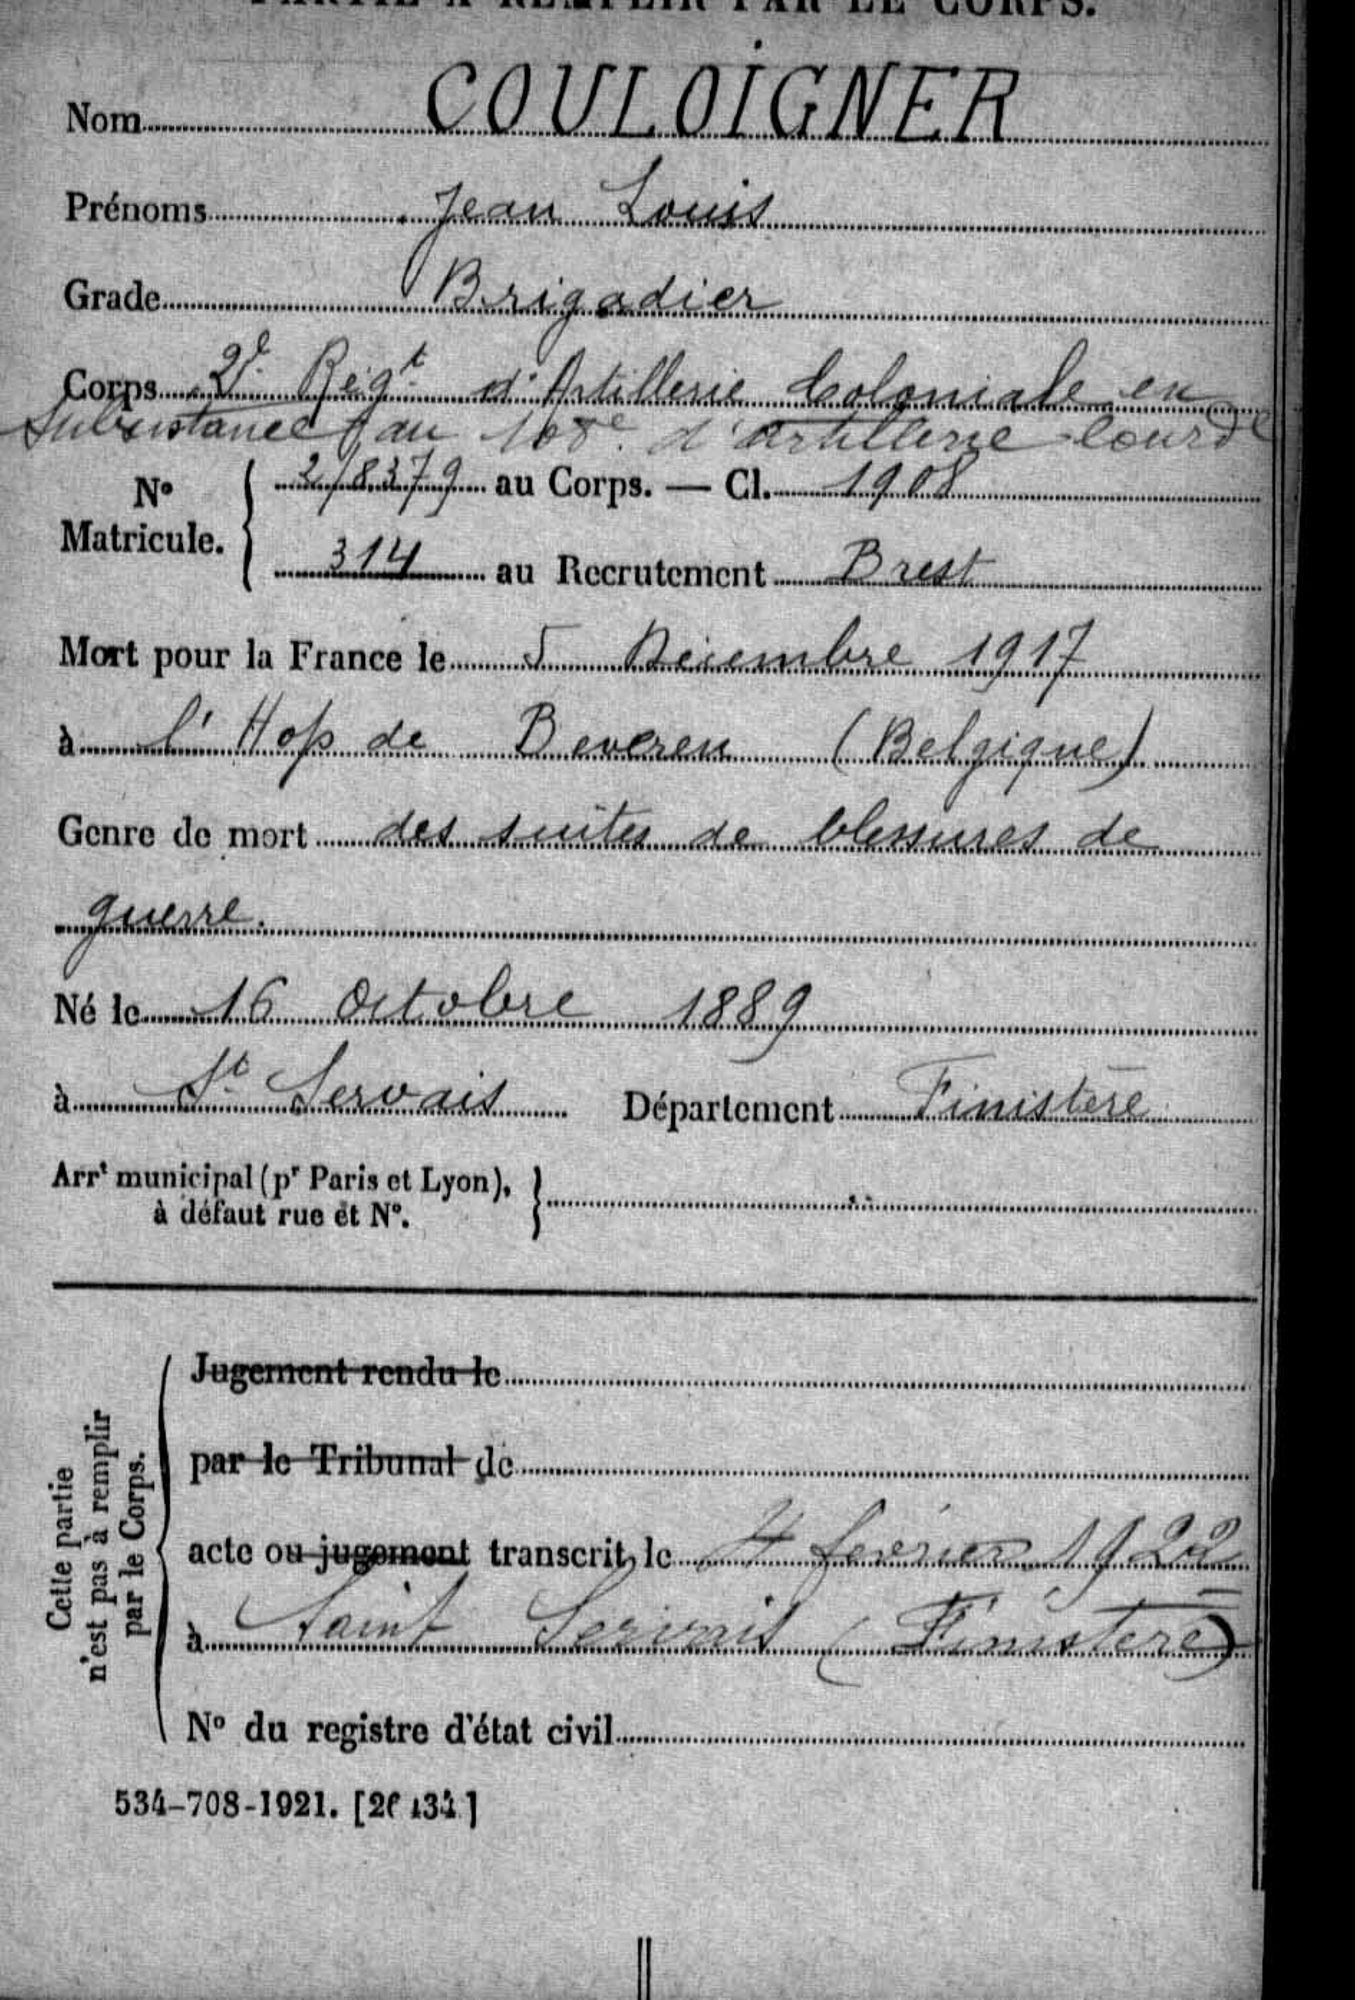 PARTIE A REMPLIR PAR LE CORPS.
Nom COULOIGNER
Prénoms Jean Louis
Grade Brigadier
Corps 2e Régt d'Artillerie Coloniale en
subsistance au 108e d'artillerie lourde
No Matricule. { 2/8379 au Corps. — Cl. 1908
314 au Recrutement Brest
Mort pour la France le 5 Décembre 1917
à l'Hop de Beveren (Belgique)
Genre de mort des suites de blessures de
guerre.
Né le 16 Octobre 1889
à St Servais Département Finistère
Arrt municipal (pr Paris et Lyon),
à défaut rue et No. }
Cette partie
n'est pas à remplir
par le Corps.
Jugement rendu le
par le Tribunal de
acte ou jugement transcrit le 4 février 1922
à Saint Servais (Finistère)
No du registre d'état civil
534-708-1921.